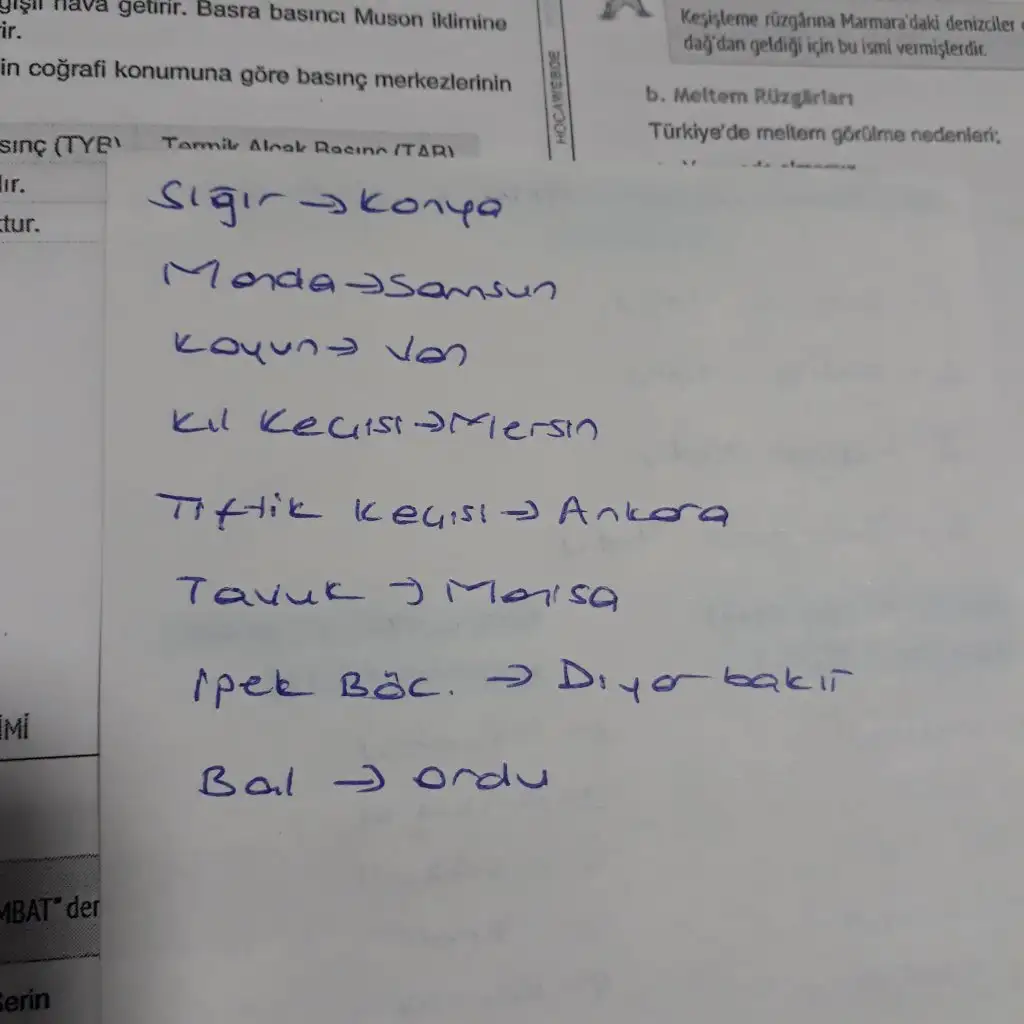 gışlı hava getirir. Basra basıncı Muson iklimine
ir.
in coğrafi konumuna göre basınç merkezlerinin
sınç (TYB) Termik Alçak Basınç (TAB)
lır.
ktur.
İMİ
MBAT" der
Serin
HOCAWEBDE
Keşişleme rüzgârına Marmara'daki denizciler
dağ'dan geldiği için bu ismi vermişlerdir.
b. Meltem Rüzgârları
Türkiye'de meltem görülme nedenleri;
Sığır → Konya
Manda → Samsun
Koyun → Van
Kıl Keçisi → Mersin
Tiftik Keçisi → Ankara
Tavuk → Manisa
İpek Böc. → Diyarbakır
Bal → Ordu